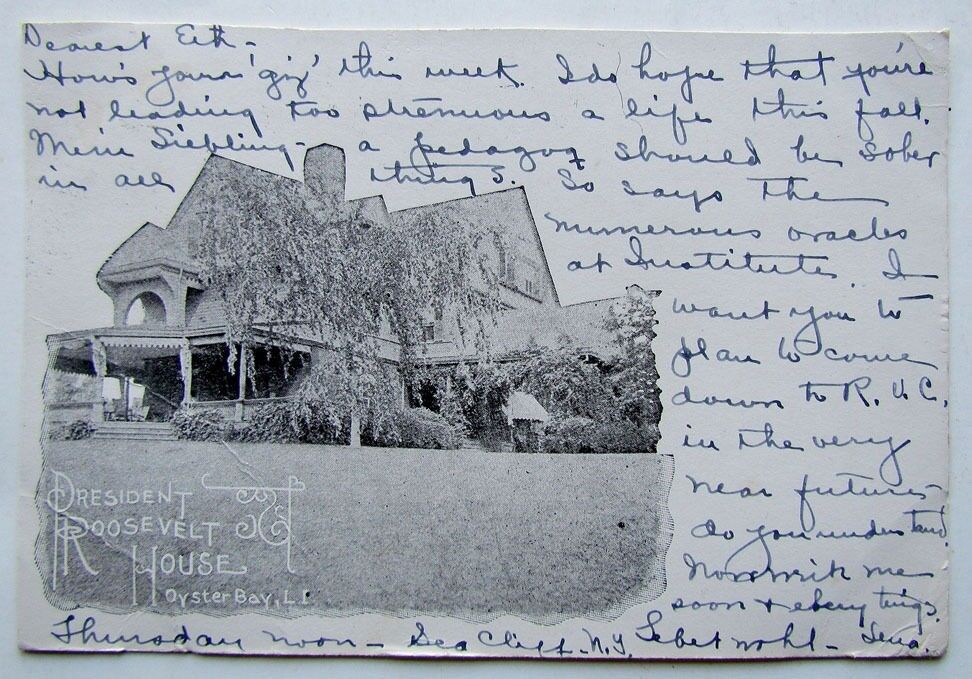 Dearest Eth -
How's your 'giz' this week. I do hope that you're
not leading too strenuous a life this fall.
Mein Siebling - a pedagog should be sober
in all things. So says the
numerous oracles
at Institute. I
want you to
plan to come
down to R. V. C.
in the very
near future -
do you understand.
Now write me
soon + ebery tings.
Thursday noon - Sea Cliff - N.Y. Lebet wohl - Lena.
PRESIDENT
ROOSEVELT
HOUSE
OYSTER BAY, L.I.